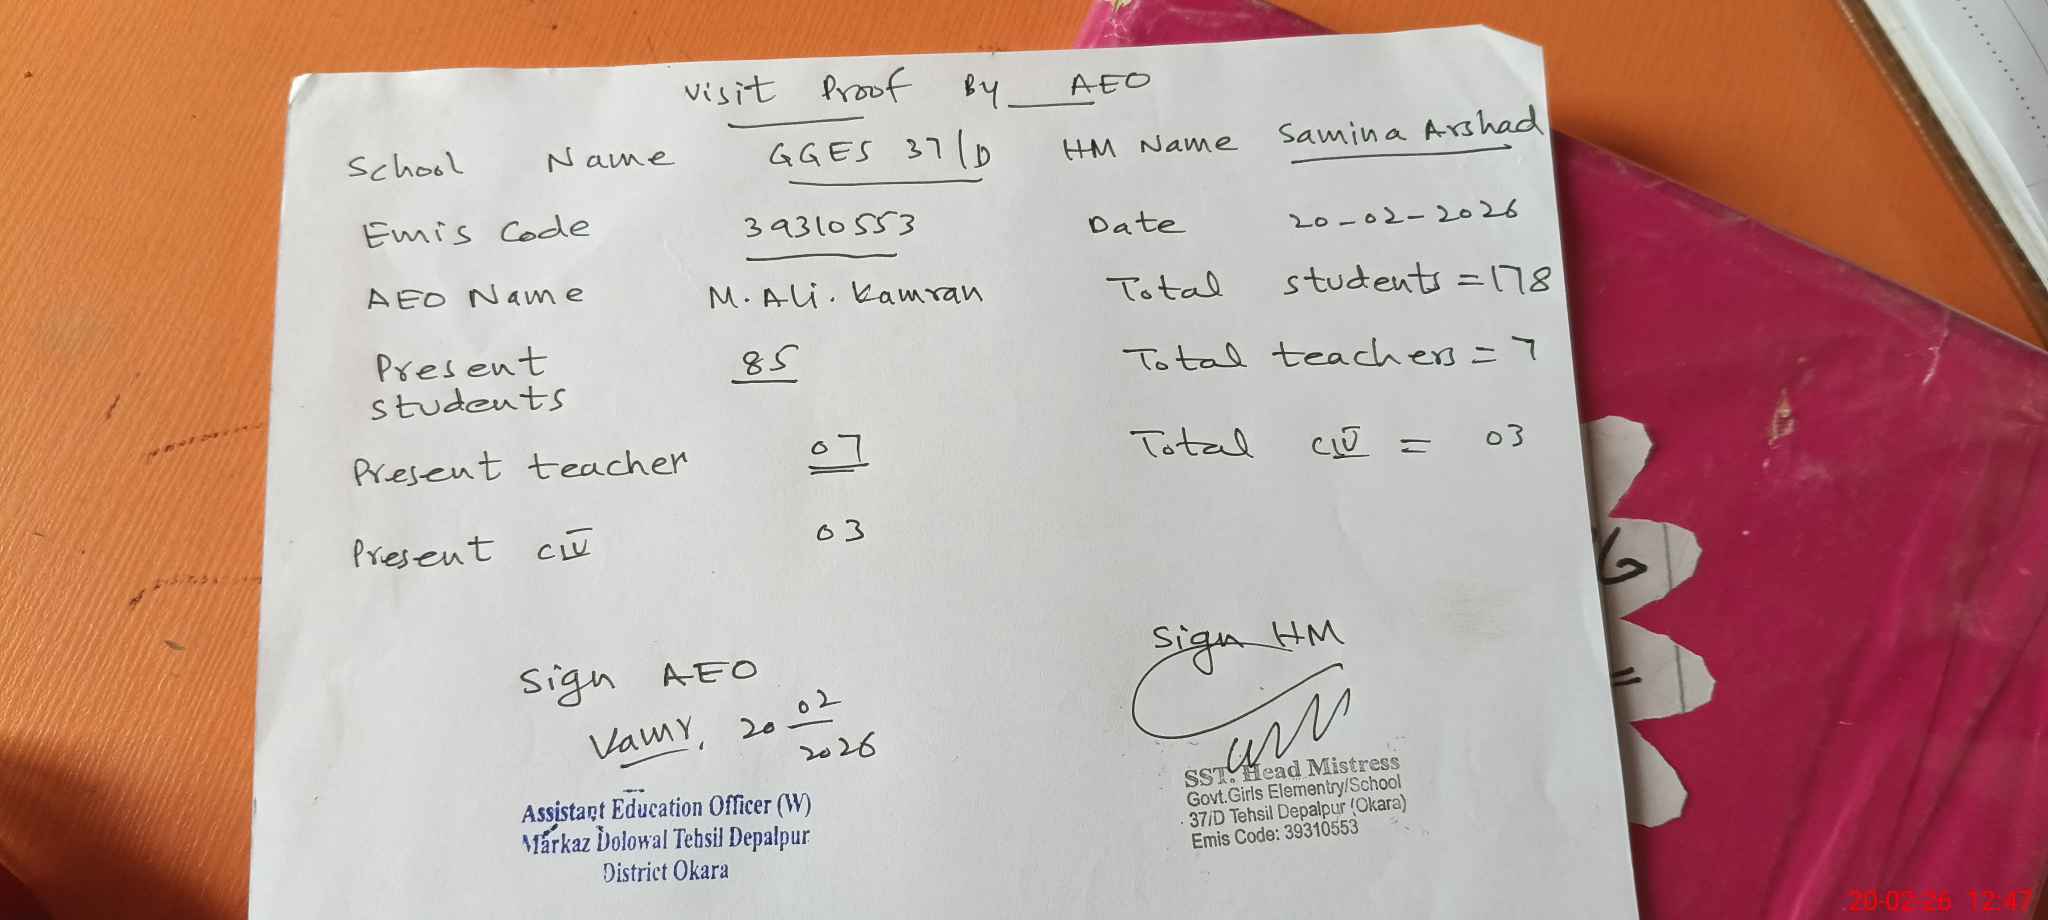 Visit Proof By AEO
School Name GGES 37/D HM Name Samina Arshad
Emis Code 39310553 Date 20-02-2026
AEO Name M. Ali. Kamran Total students = 178
Present students 85 Total teachers = 7
Present teacher 07 Total CIV = 03
Present CIV 03
Sign AEO
20 02 2026
Assistant Education Officer (W)
Markaz Dolowal Tehsil Depalpur
District Okara
Sign HM
SST. Head Mistress
Govt.Girls Elementry/School
37/D Tehsil Depalpur (Okara)
Emis Code: 39310553
20-02-26 12:47